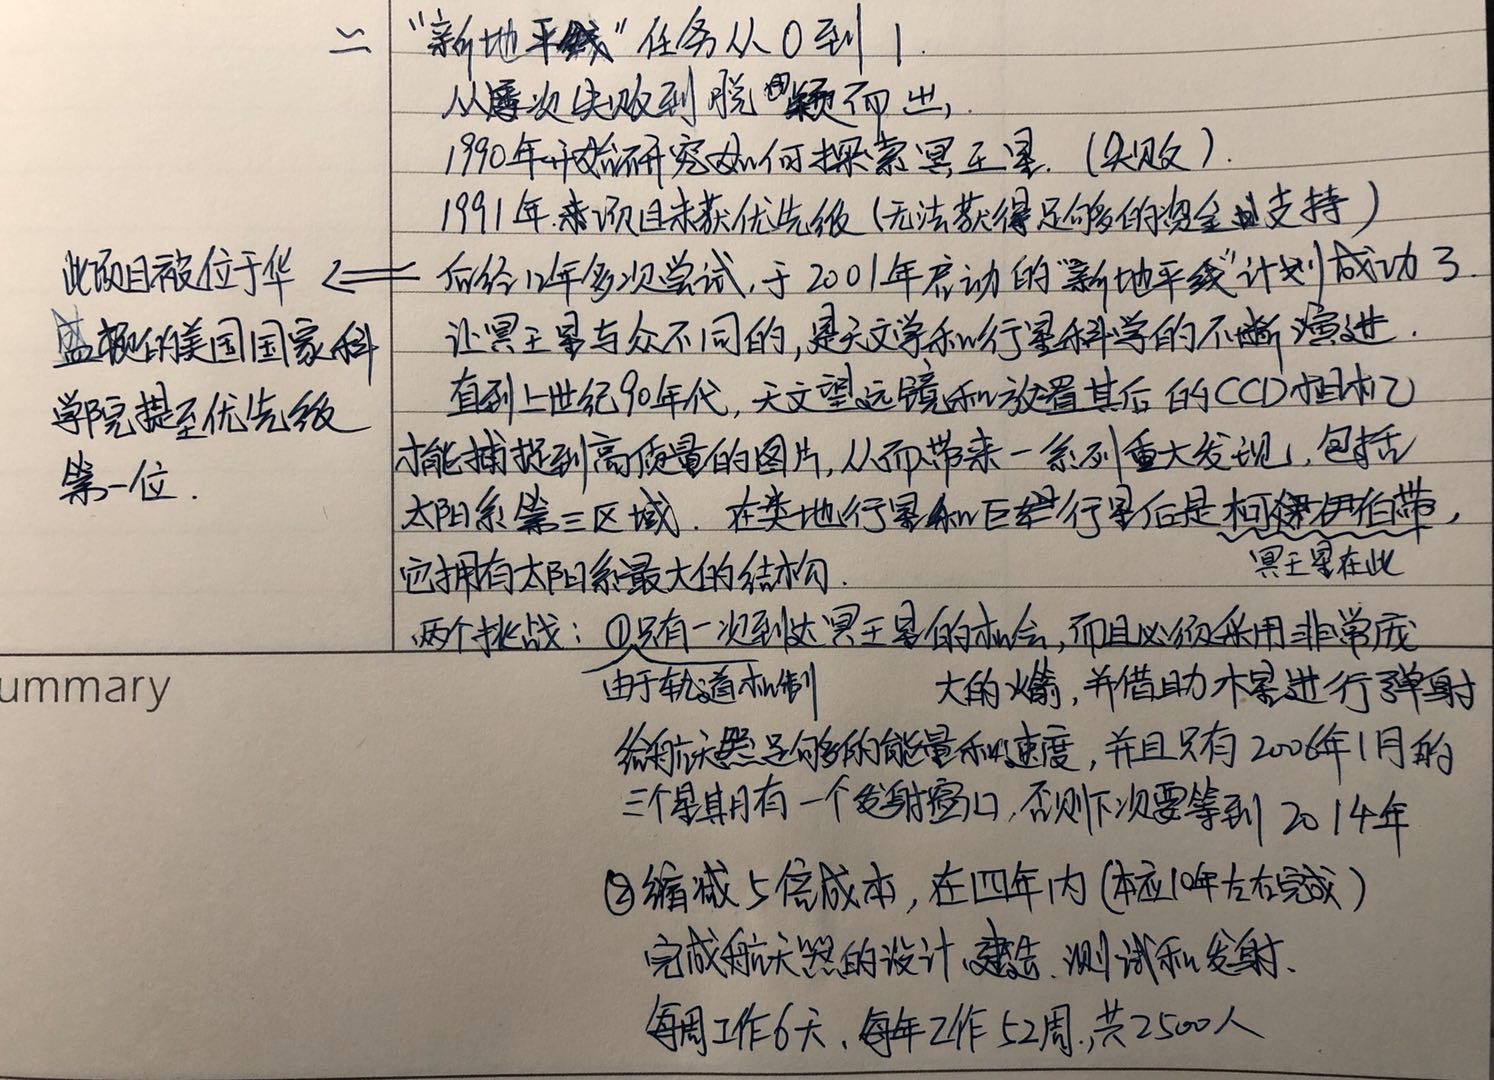 二 "新地平线"任务从0到1.
从屡次失败到脱颖而出,
1990年开始研究如何探索冥王星.(失败).
1991年.项目未获优先级(无法获得足够多的资金支持)
后经12年多次尝试,于2001年启动的"新地平线"计划成功了.
此项目被位于华
盛顿的美国国家科
学院提至优先级
第一位.
让冥王星与众不同的,是天文学和行星科学的不断演进.
直到上世纪90年代,天文望远镜和放置其后的CCD相机
才能捕捉到高质量的图片,从而带来一系列重大发现,包括
太阳系第三区域.在类地行星和巨行星后是柯伊伯带,
冥王星在此
它拥有太阳系最大的结构.
两个挑战:①只有一次到达冥王星的机会,而且必须采用非常庞
由于轨道机制
大的火箭,并借助木星进行弹射
给航天器足够多的能量和速度,并且只有2006年1月的
三个星期有一个发射窗口,否则下次要等到2014年
②缩减5倍成本,在四年内(本应10年左右完成)
完成航天器的设计、建造、测试和发射.
每周工作6天、每年工作52周,共2500人
ummary